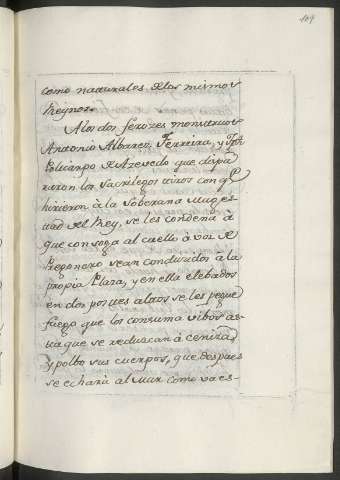 109
como naturales de los mismos
Reynos.
A los dos ferozes monstruos
Antonio Albarez, Ferreira, y Jph
Policarpo de Azevedo que dispa
raron los sacrilegos tiros con qe
hirieron à la Soberana Mages
tad del Rey, se les condena à
que con soga al cuello à vos de
Pregonero sean conducidos à la
propia Plaza, y en ella elebados
en dos postes altos se les pegue
fuego que los consuma vibos as
ta que se reduzcan à ceniza
y polbo sus cuerpos, que despues
se echará al Mar como va es-